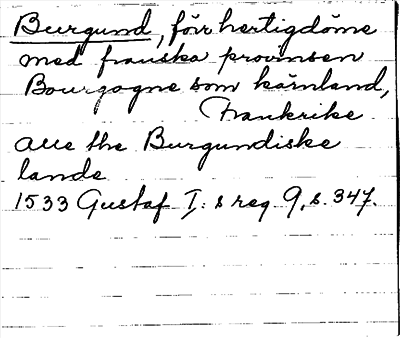 Burgund, förr hertigdöme
med franska provinsen
Bourgogne som kärnland,
Frankrike
alle the Burgundiske
lande
1533 Gustaf I:s reg 9, s. 347.